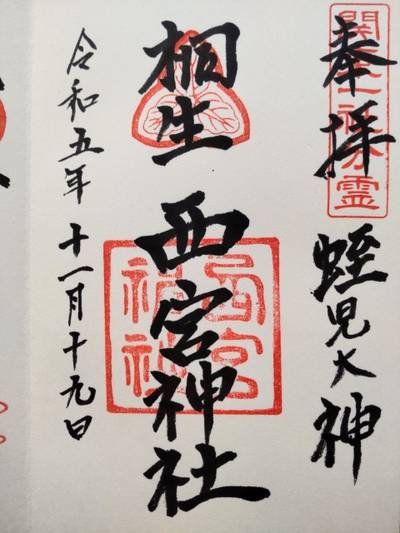 奉拝 蛭児大神
関東一社分霊
桐生 西宮神社
西宮神社
令和五年 十一月十九日